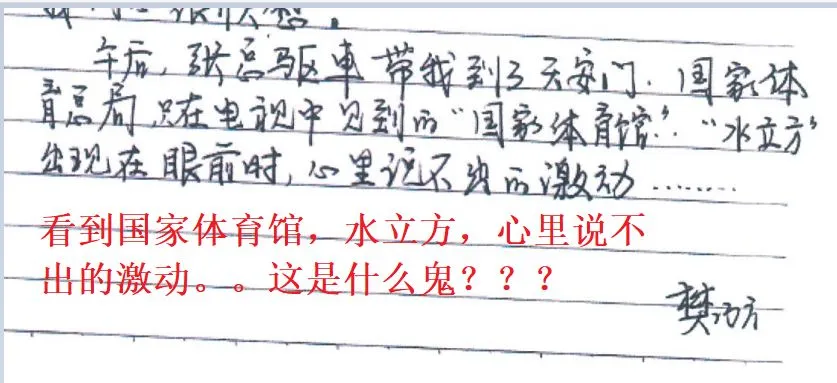 午后,张总驱車带我到了天安门.国家体
育总局,只在电视中见到的"国家体育馆"."水立方"
出现在眼前时,心里说不出的激动........
看到国家体育馆，水立方，心里说不
出的激动。。这是什么鬼？？？